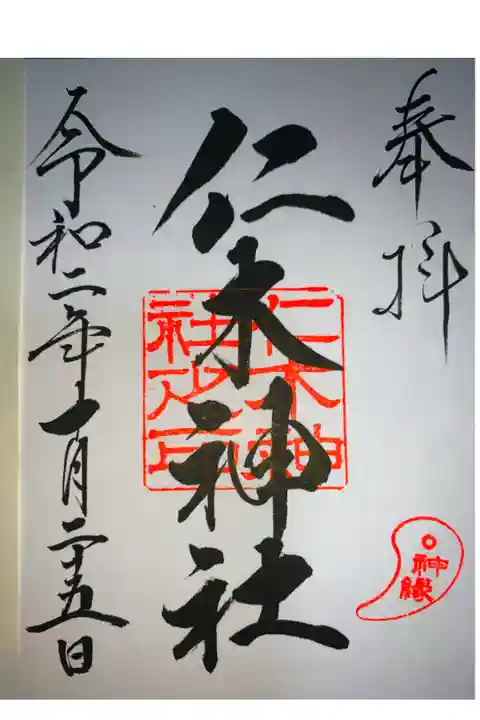 奉拝
仁木神社
仁木神
社之印
神縁
令和二年十一月二十五日